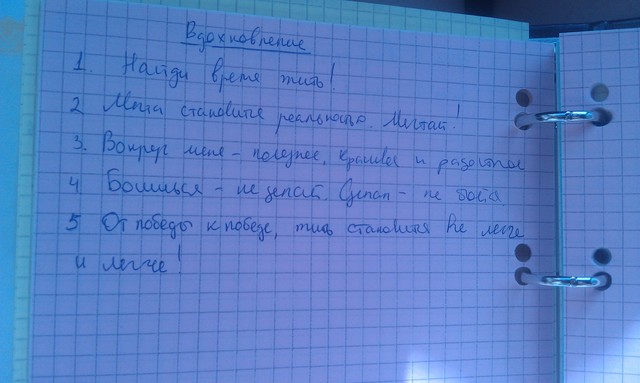 Вдохновление
1. Найди время жить!
2 Мечта становится реальностью. Мечтай!
3. Вокруг меня - полезное, красивое и радостное
4 Боишься - не делай. Делай - не бойся
5 От победы к победе, жить становится все легче
и легче!